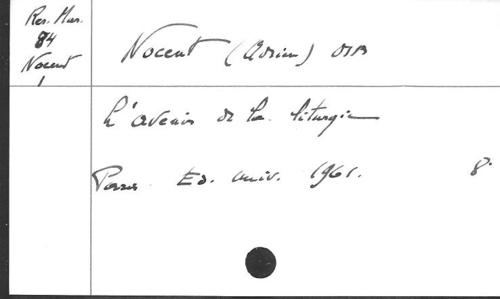 Res. Mus.
84
Nocent
1
Nocent (Adrien) OSB
L'avenir de la liturgie
Paris Ed. Univ. 1961. 8°